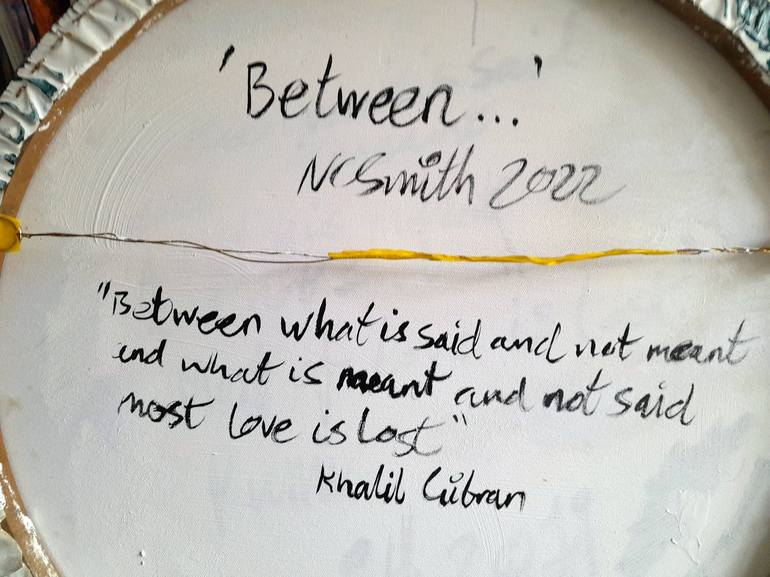 'Between...'
NCSmith 2022
"Between what is said and not meant
and what is meant and not said
most love is lost"
Khalil Gibran